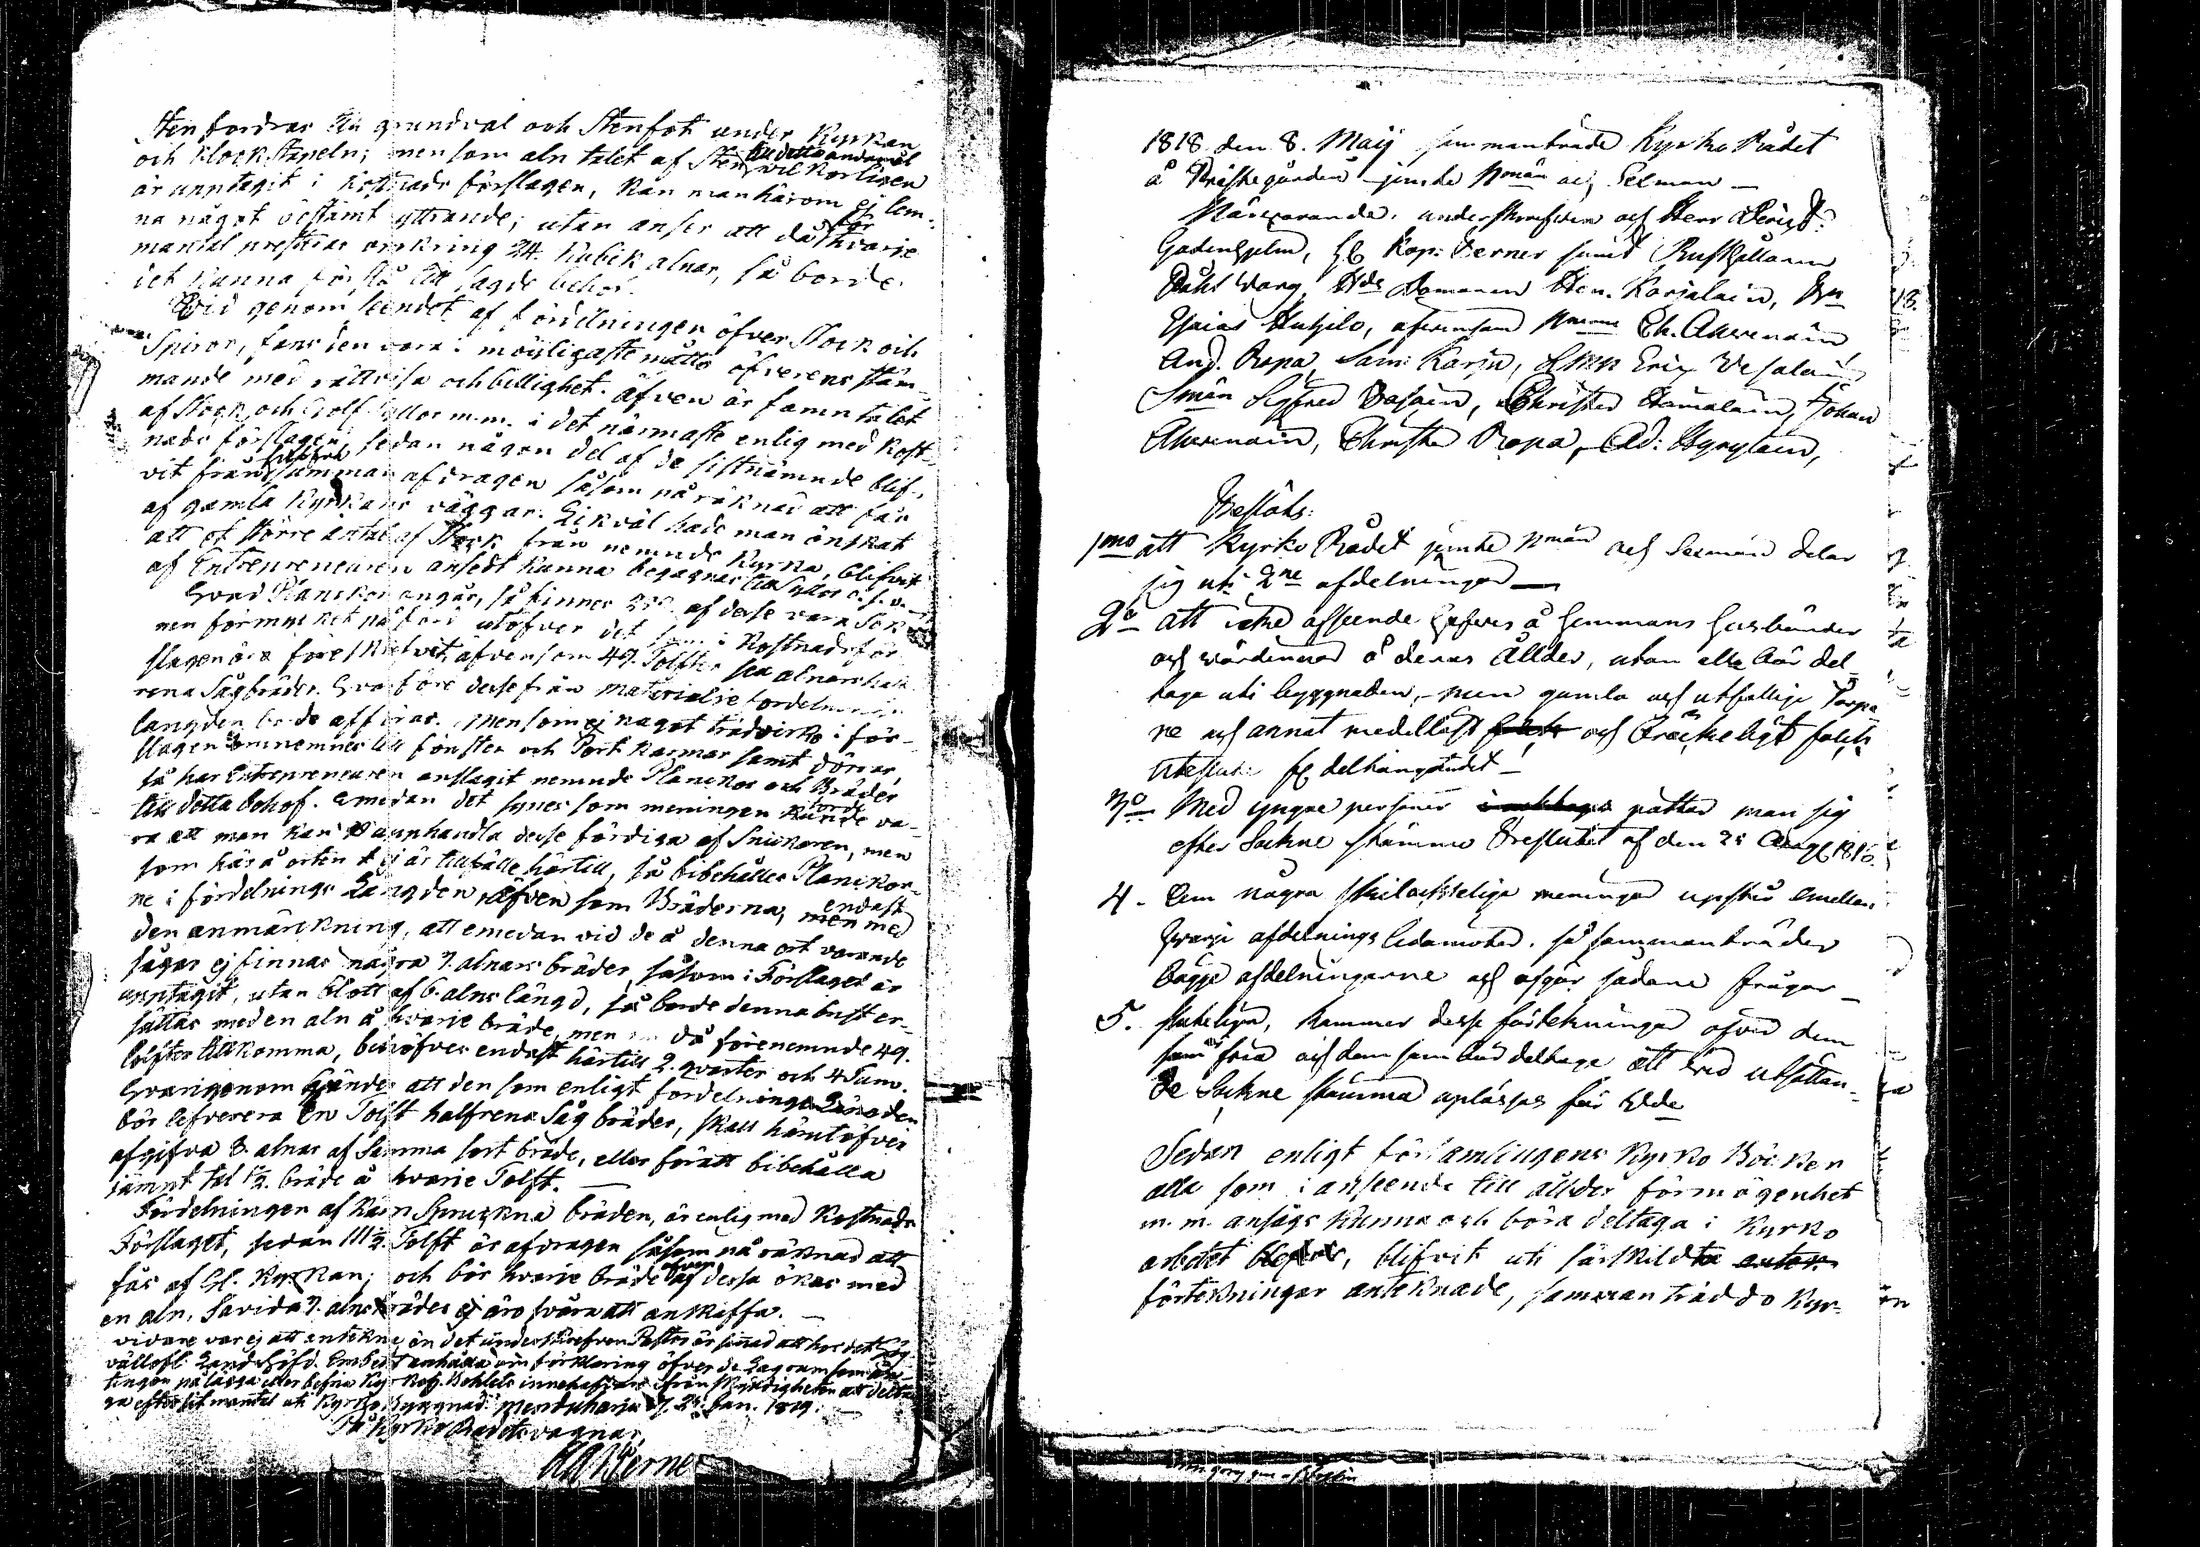 Sten fordras till grundval och Stenfot under Kyrkan
och Klock Stapeln; men som aln talet af Sten till detta ändamål wilkorligen
är upptagit i Kostnads förslagen, kan man härom ej lem-
na något bestämt yttrande; utan anser att då för hvarje
mantal prestras omkring 24. Kubik alnar, så borde
det kunna förslå till sagde behof.
Vid genom seendet af fördelningen öfver Stock och
Spiror, fans den vara i möjligaste måtto öfverens stäm-
mande med rättvisa och billighet. Äfven är famn talet
af Stock, och Golf tillor m.m. i det närmaste enlig med Kost-
nads förslagen, sedan någon del af de sistnämnde blif-
vit från summan afdragen såsom påräknad att fås
af gamla Kyrkans väggar. Likväl hade man önskat
att et större antal af Stock från nemnde Kyrka, blifvit
af Entrepreneuren ansedt kunna begagnas till Syllor o.s.v.
Hvad Planckor angår, så finnes af desse vara
men förmycket påförd utöfver det som i Kostnads för
slagen äro föreskrivit, äfvensom 49. Tolfter sex alnars half
rena Sågbräder. Hvarföre desse från materialie fordelnings
längden borde afföras. Men som ej något trädvirke i för-
slagen omnemnes till fönster och Port karmar samt dörrar,
så har Entrepreneuren anslagit nemnde Planckor och Bräder
till detta behof. Emedan det synes som meningen torde va-
ra att man kan upphandla desse färdiga af Snickaren, men
som här å orten ej är tillfälle härtill, så bibehålles Planckor-
ne i fördelnings Längden äfven som Bräderna, endast med
den anmärckning, att emedan vid de å denna ort varande
sågar ej finnas några 7. alnars bräder, såsom i Förslaget är
upptagit, utan blott af 6. alns längd, så borde denna brist er-
sättas med en aln å hvarje bräde, men då förenemnde 49.
tolfter tillkomma, behöfves endast härtill 2. qvarter och 4 Tum.
Hvarigenom händer att den som enligt fordelnings Längden
bör lefverera En Tolft halfrena Såg bräder, skall häruutöfver
afgifva 8. alnar af Samma sort bräde, eller för att bibehålla
jämnt tal 1½. bräde å hvarje Tolft.
Fördelningen af Ren Spruckna bräden, är enlig med Kostnads
Förslaget, sedan 111½ Tolft är afdragen såsom påräknad att
fås af Gl. Kyrkan; och bör hvarje bräde äfven af dessa ökas med
en aln, Såvida 7. alns bräder ej äro svåra att anskaffa.
vidare var ej att antekna än det underskrefven Pastor är sinnad att hos det Hög-
vällofl: Landshöfd. Embetet anhålla om förklaring öfver de Lagrum som an-
tingen pålägga eller befria Kyrkoh. Bohlets innehafvare ifrån skyldigheten att delta-
ga efter sit mantal uti Kyrko byggnad. Menduharju d. 24. Jan. 1819.
På Kyrko Rådets vägnar,
Werner
1818 den 8. Maij sammanträde Kyrko Rådet
å Prästegården jemte Nmän och Sexman —
Närvarande. underskrefven och Herr
Gadenhjelm, Kap: Berner samt Rusthållaren
Domaren Hen. Karjalain,
Esaias Hutzilo, äfvensom Ch. Ahvenain
And. Ropa, Sam: Karju, Eric Vesalain,
Smän Sigfred, Christer Hämäläin, Johan
Ahvenain, Christer Ropa, Ad: Hyrylain,
Beslöts:
1mo att Kyrko Rådet jemte Nmän och Sexmän delar
sig uti 2ne afdelningar —
2o att icke afseende hafves å Hemmans husbönder
och värdinnor å deras Ållder, utan alla bör del
taga uti byggnaden, men gamla och utfattige Torpa
re och annat medellöst och Bräckeligt folck
uteslut: fr delhängandet —
3o Med yngre personer rättar man sig
efter Sockne stämme Beslutet af den 25 Aug 1816.
4. Om några skilacktelige meningar upstår emellan
hvarje afdelnings Ledamoter. så sammanträder
bägge afdelningarne och afgör sådane frågor —
5. slutelign, kommer desse förtekningar öfver dem
som äro fria och dem som bör deltaga att vid utsattan-
de Sockne stämma upläsas för
Sedan enligt församlingens Kyrko Böcker
alla som i anseende till ållder förmögenhet
m.m. ansågs kunna och böra deltaga i Kyrko
arbetet, blifvit uti särskildta
förtekningar anteknade, sammanträdde Kyr-